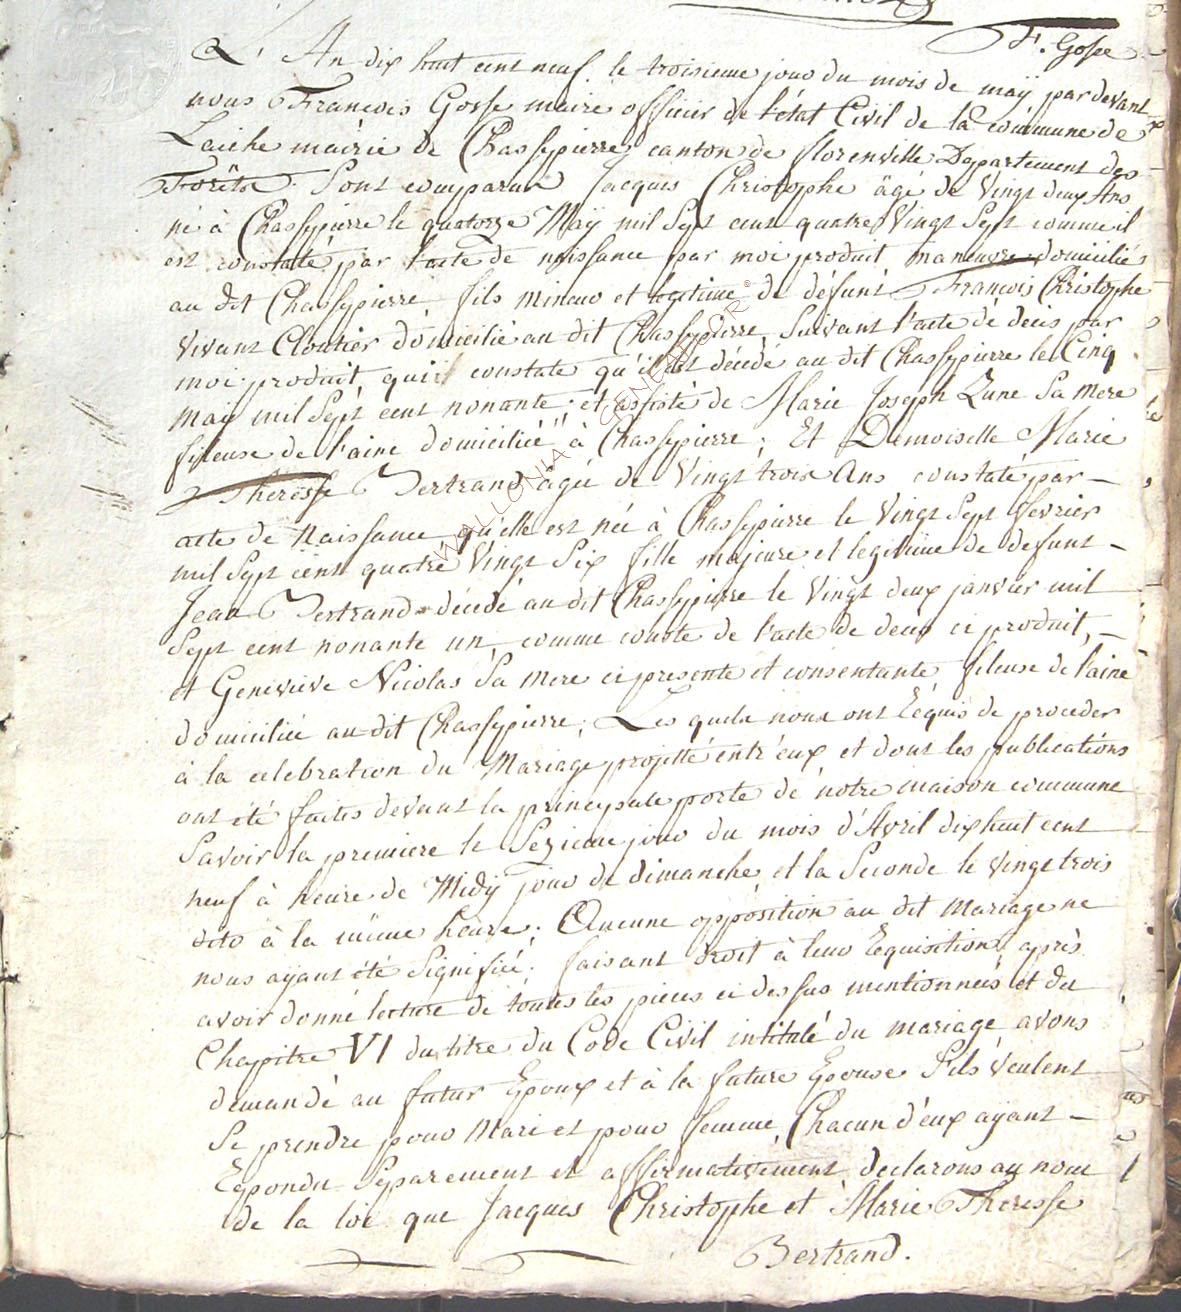 F. Gosse
L'An dix huit cent neuf. le troisieme jour du mois de maÿ par devant
nous François Gosse maire officier de l'état Civil de la commune de
Laiche mairie de Chassypierre canton de florenville Département des
Forêts. Sont comparus Jacques Christophe âgé de Vingt deux Ans
né à Chassypierre le quatorze Maÿ mil Sept cent quatre Vingt Sept comme il
est constaté par l'acte de naissance par moi produit manœuvre domicilié
au dit Chassypierre fils mineur et legitime de défunt François Christophe
Vivant Cloutier domicilié au dit Chassypierre, Suivant l'acte de deces par
moi produit, qui constate qu'il est décédé au dit Chassypierre le Cinq
maÿ mil Sept cent nonante; et assisté de Marie Joseph Lune Sa mere
fileuse de l'aine domiciliée à Chassypierre; Et Demoiselle Marie
Theresse Bertrand âgée de Vingt trois Ans constaté par
acte de Naissance qu'elle est née à Chassypierre le Vingt Sept fevrier
mil Sept cent quatre Vingt Six fille majeure et legitime de defunt
Jean Bertrand décédé au dit Chassypierre le Vingt deux janvier mil
Sept cent nonante un, comme conste de l'acte de deces ci produit,
et Genevieve Nicolas Sa mere ci presente et consentante fileuse de l'aine
domiciliée au dit Chassypierre; Les quels nous ont Requis de proceder
à la celebration du Mariage projetté entr'eux et dont les publications
ont été faites devant la principale porte de nôtre maison commune
Savoir la premiere le Sezieme jour du mois d'Avril dix huit cent
neuf à heure de Midÿ jour de dimanche et la Seconde le vingt trois
dito à la même heure; Aucune opposition au dit Mariage ne
nous aÿant été Signifiée. faisant droit à leur Requisition, après
avoir donné lecture de toutes les pieces ci dessus mentionnées et du
Chapitre VI du titre du Code Civil intitulé du mariage avons
demandé au futur Epoux et à la future Epouse S'ils veulent
Se prendre pour Mari et pour femme, Chacun d'eux aÿant
Repondu Séparement et affirmativement declarons au nom
de la loi que Jacques Christophe et Marie Theresse
Bertrand.
WALLONIA GENEACOR ©